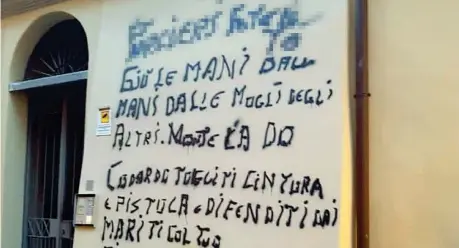 GIÙ LE MANI DALL
MANI DALLE MOGLI DEGLI
ALTRI. MONTE LA DO
CODARDO TOGLITI CINTURA
E PISTOLA E DIFENDITI DAI
MARITI COL TUO